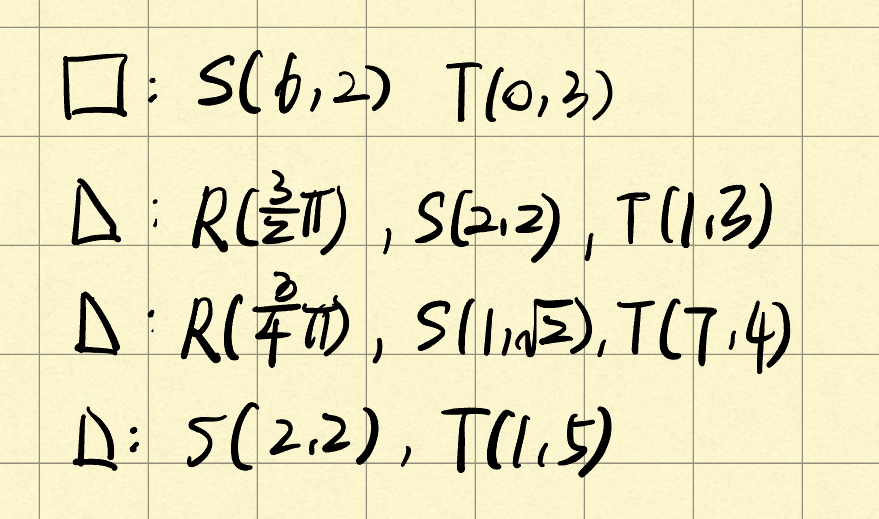 □: S(6,2) T(0,3)
△: R(3/2π), S(2,2), T(1,3)
△: R(3/4π), S(1,√2), T(7,4)
△: S(2,2), T(1,5)